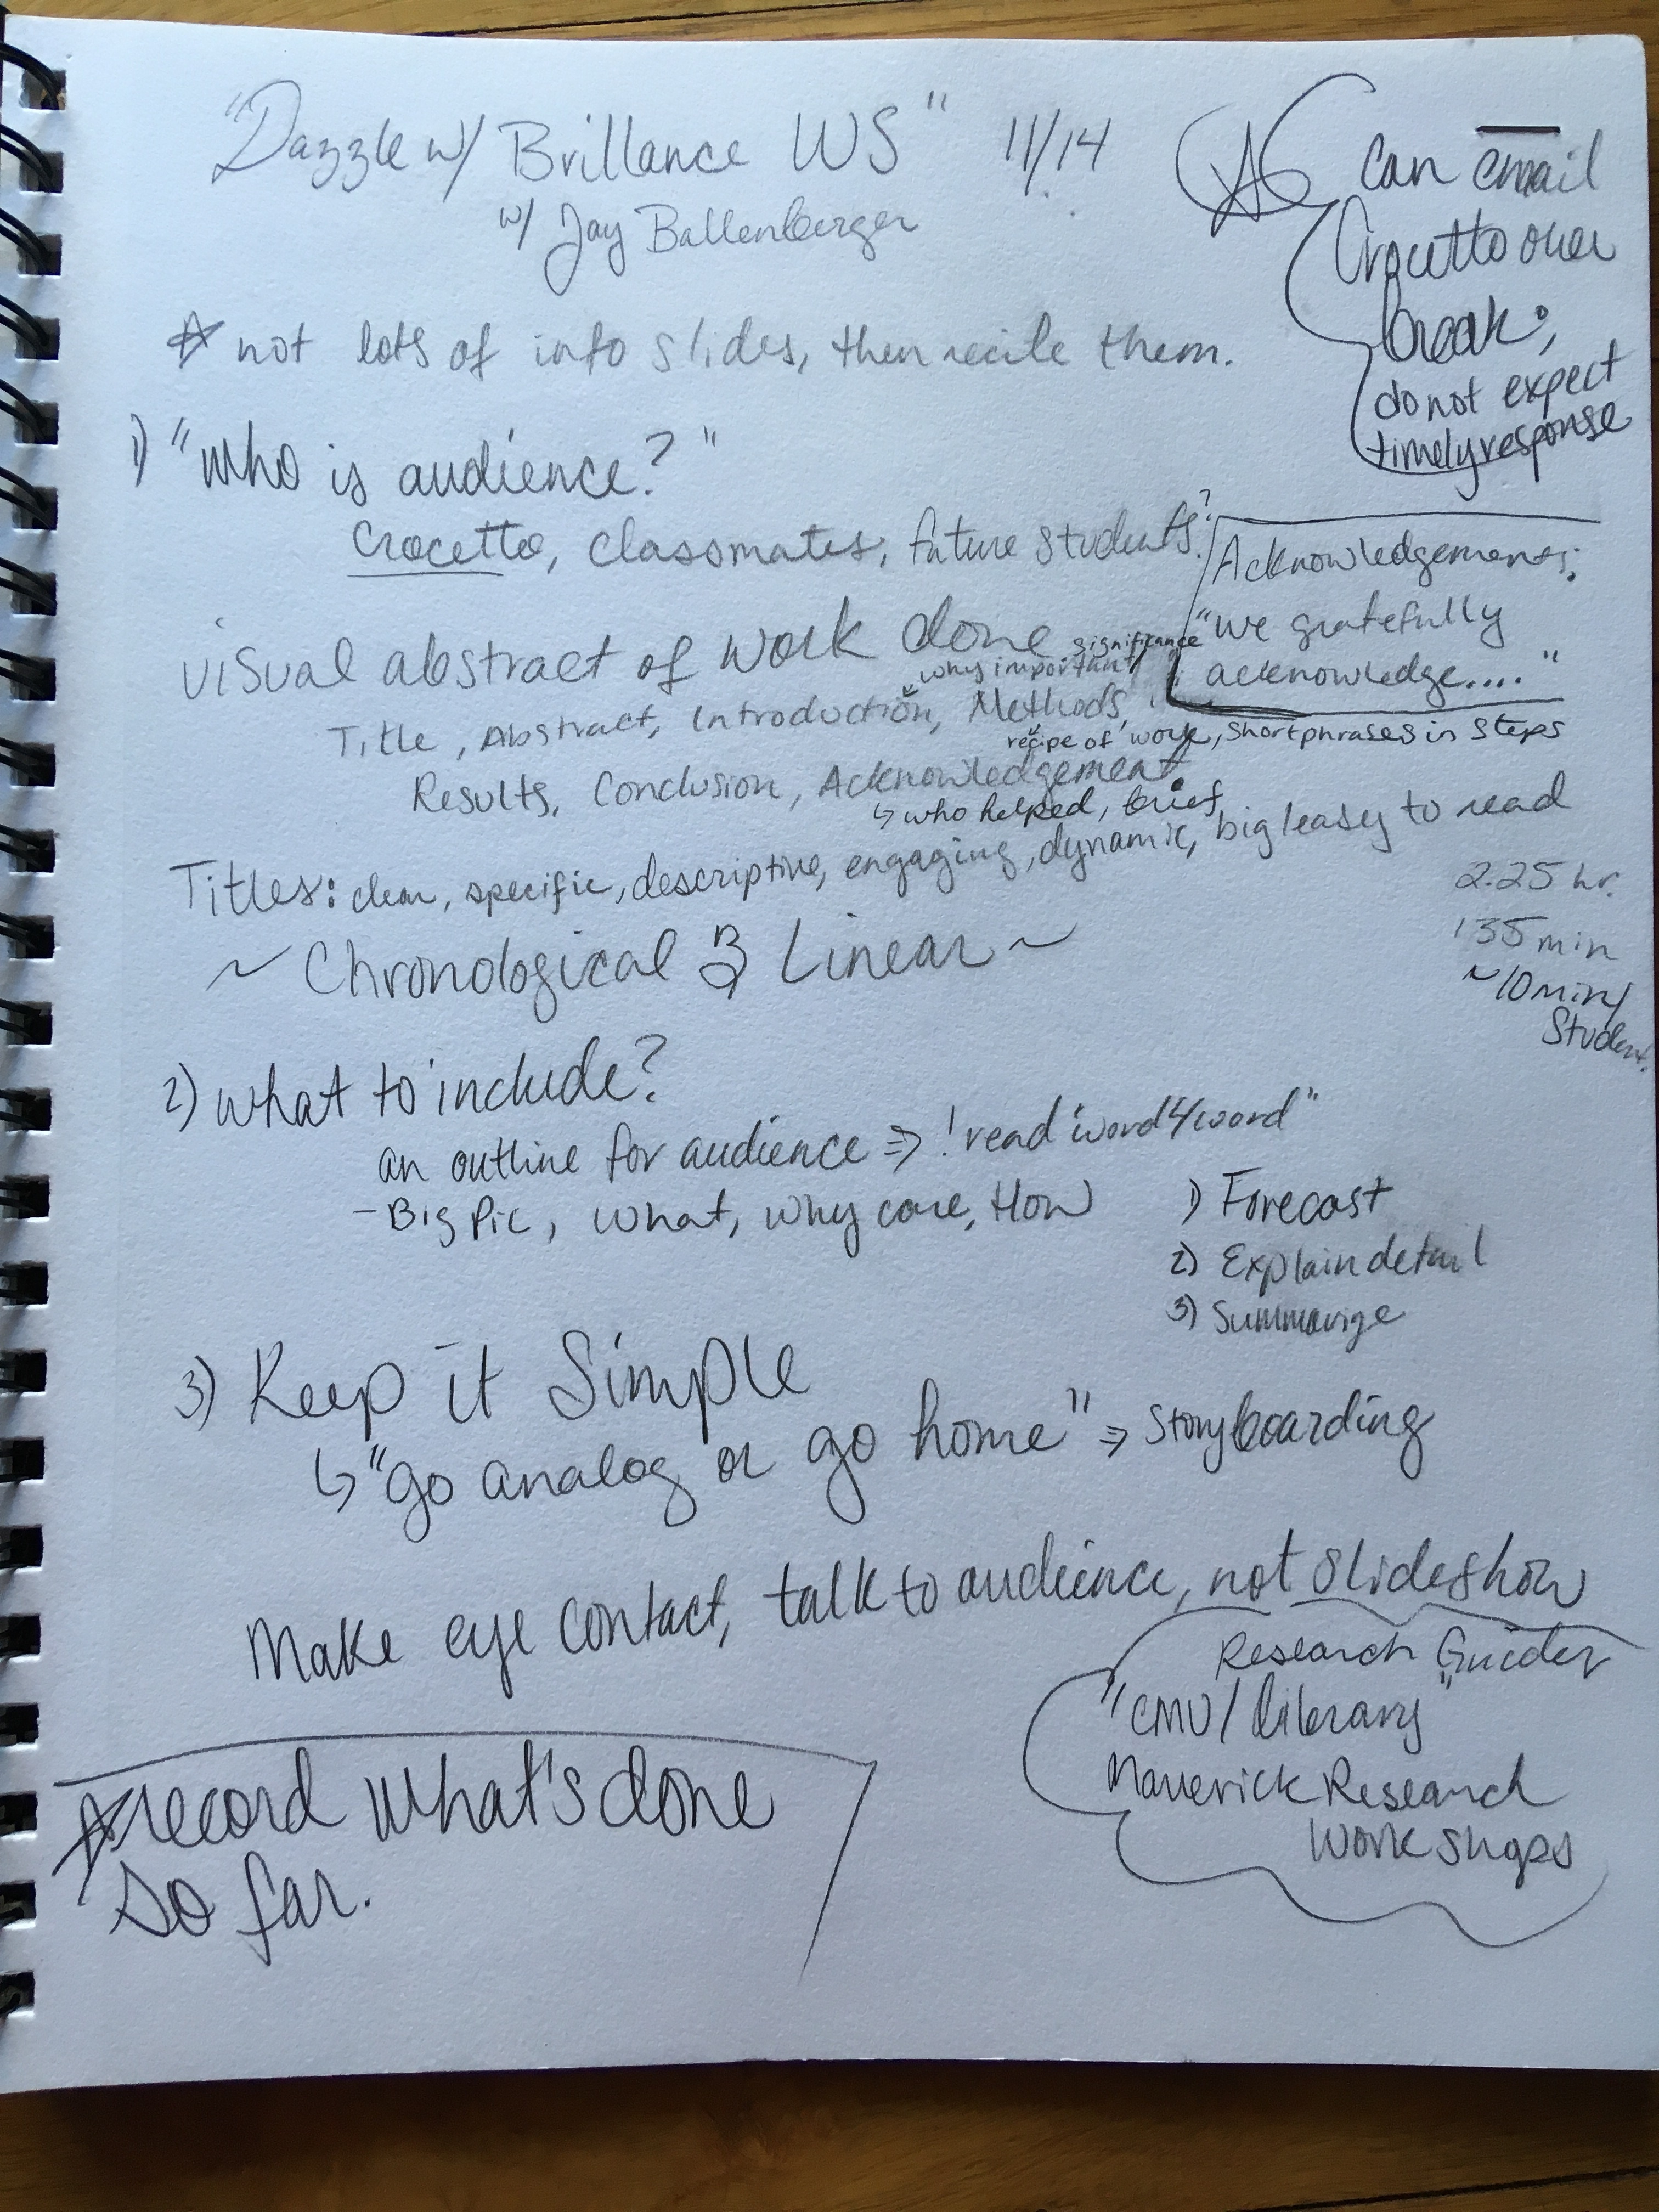 "Dazzle w/ Brillance WS" 11/14
w/ Jay Ballenberger
Can email
Crocetto over
break;
do not expect
timely response
☆ not lots of info slides, then recite them.
1) "Who is audience?"
Crocetto, classmates, future students?
Acknowledgements:
"We gratefully
acknowledge...."
visual abstract of work done
significance
why important
Title, Abstract, Introduction, Methods,
recipe of work, short phrases in steps
Results, Conclusion, Acknowledgement.
↳ who helped, brief
Titles: clear, specific, descriptive, engaging, dynamic, big/easy to read
~ Chronological & Linear ~
2.25 hr.
135 min
~10 min/
Student.
2) what to include?
an outline for audience => ! read "word4word"
- Big Pic, What, Why care, How
1) Forecast
2) Explain detail
3) Summarize
3) Keep it Simple
↳ "go analog or go home" => Storyboarding
Make eye contact, talk to audience, not slideshow
Research Guides
"CMU/library"
Maverick Research
Work shops
☆ record what's done
so far.